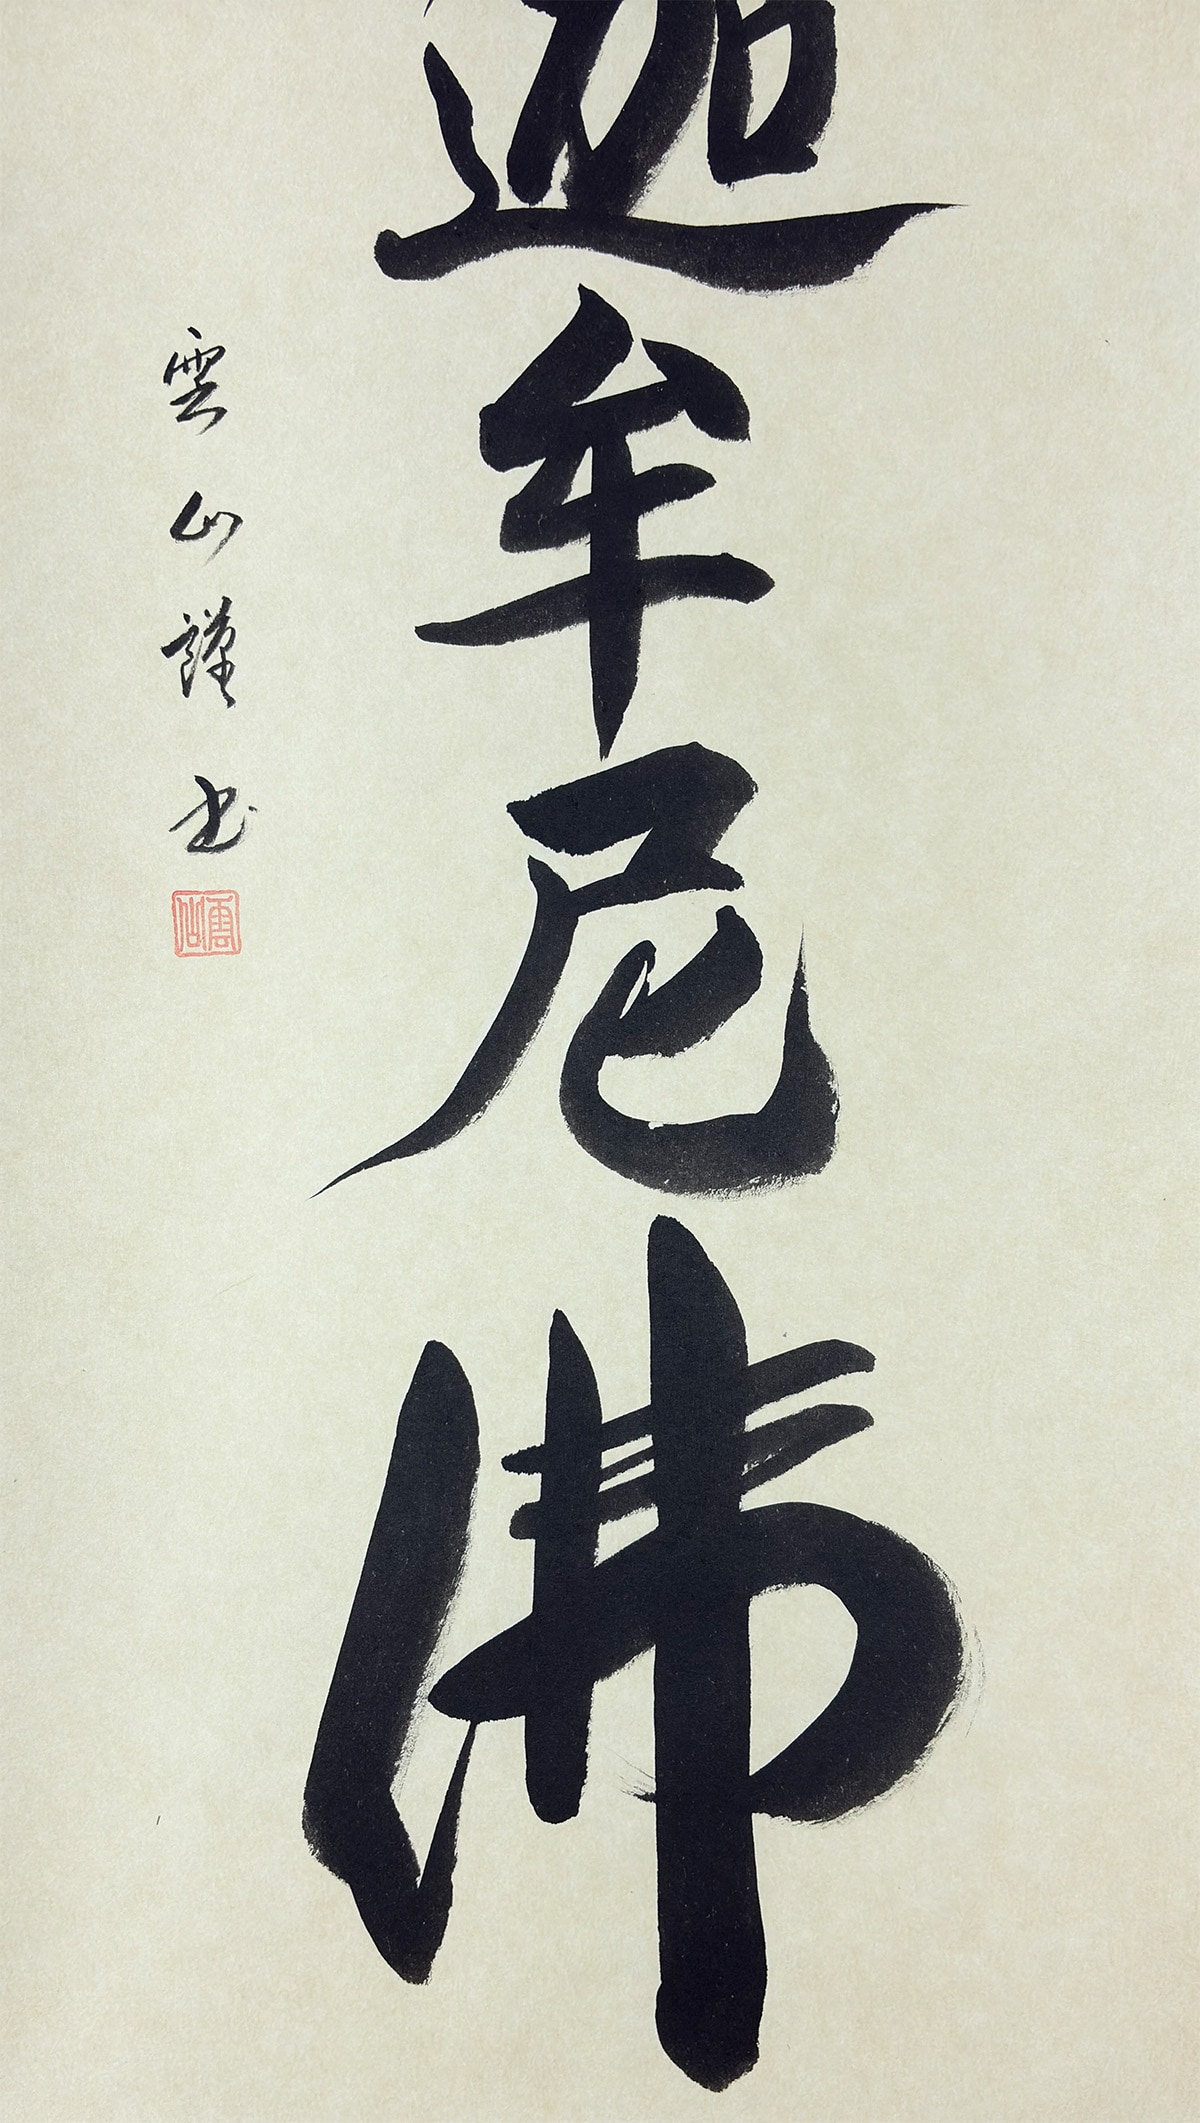 迦牟尼佛
雲山謹書